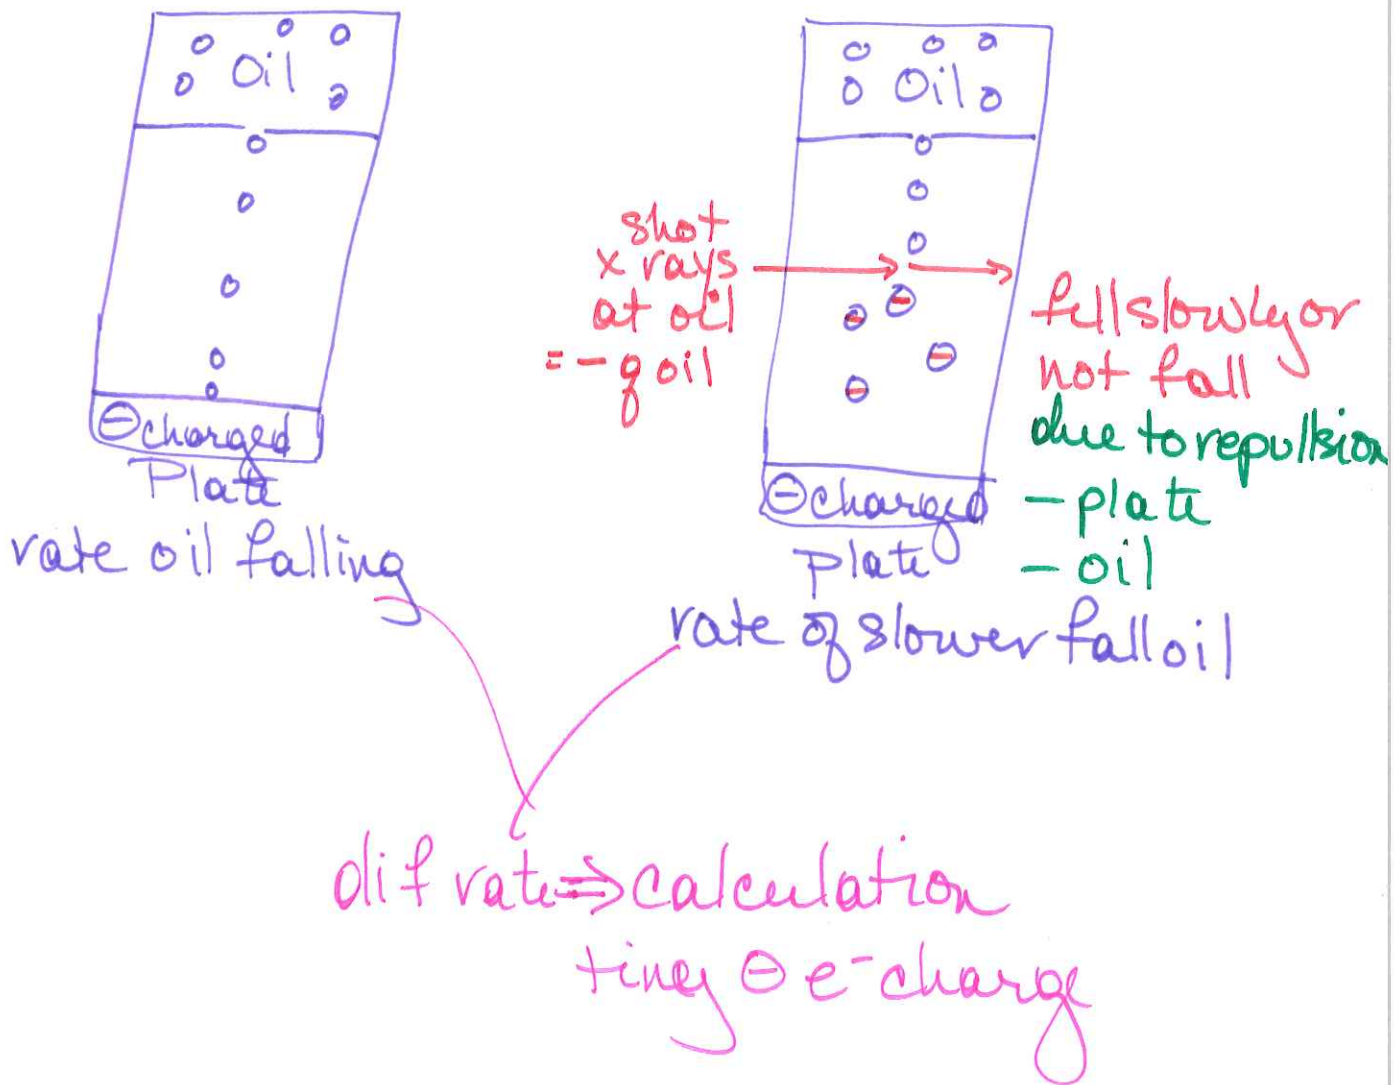 Oil
⊖charged
Plate
rate oil falling
Oil
shot
x rays
at oil
= - q oil
fell slowly or
not fall
due to repulsion
- plate
- oil
⊖charged
plate
rate of slower fall oil
dif rate ⇒ calculation
tiney ⊖ e⁻ charge